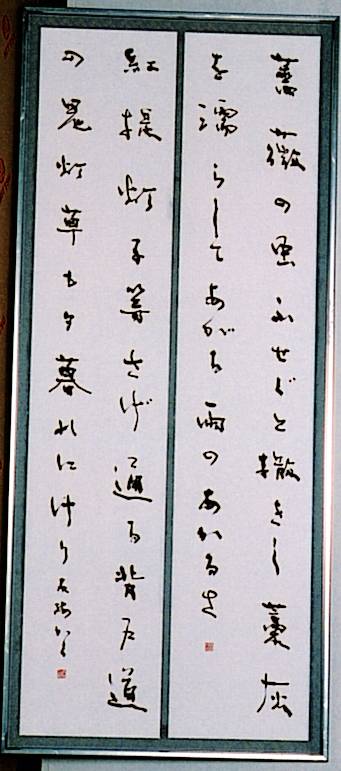 薔薇の虫ふせぐと撒きし藁灰
を濡らしてあがる雨のあかるさ
紅提灯子等さげ通る背戸道
の鬼灯草も夕暮れにけり